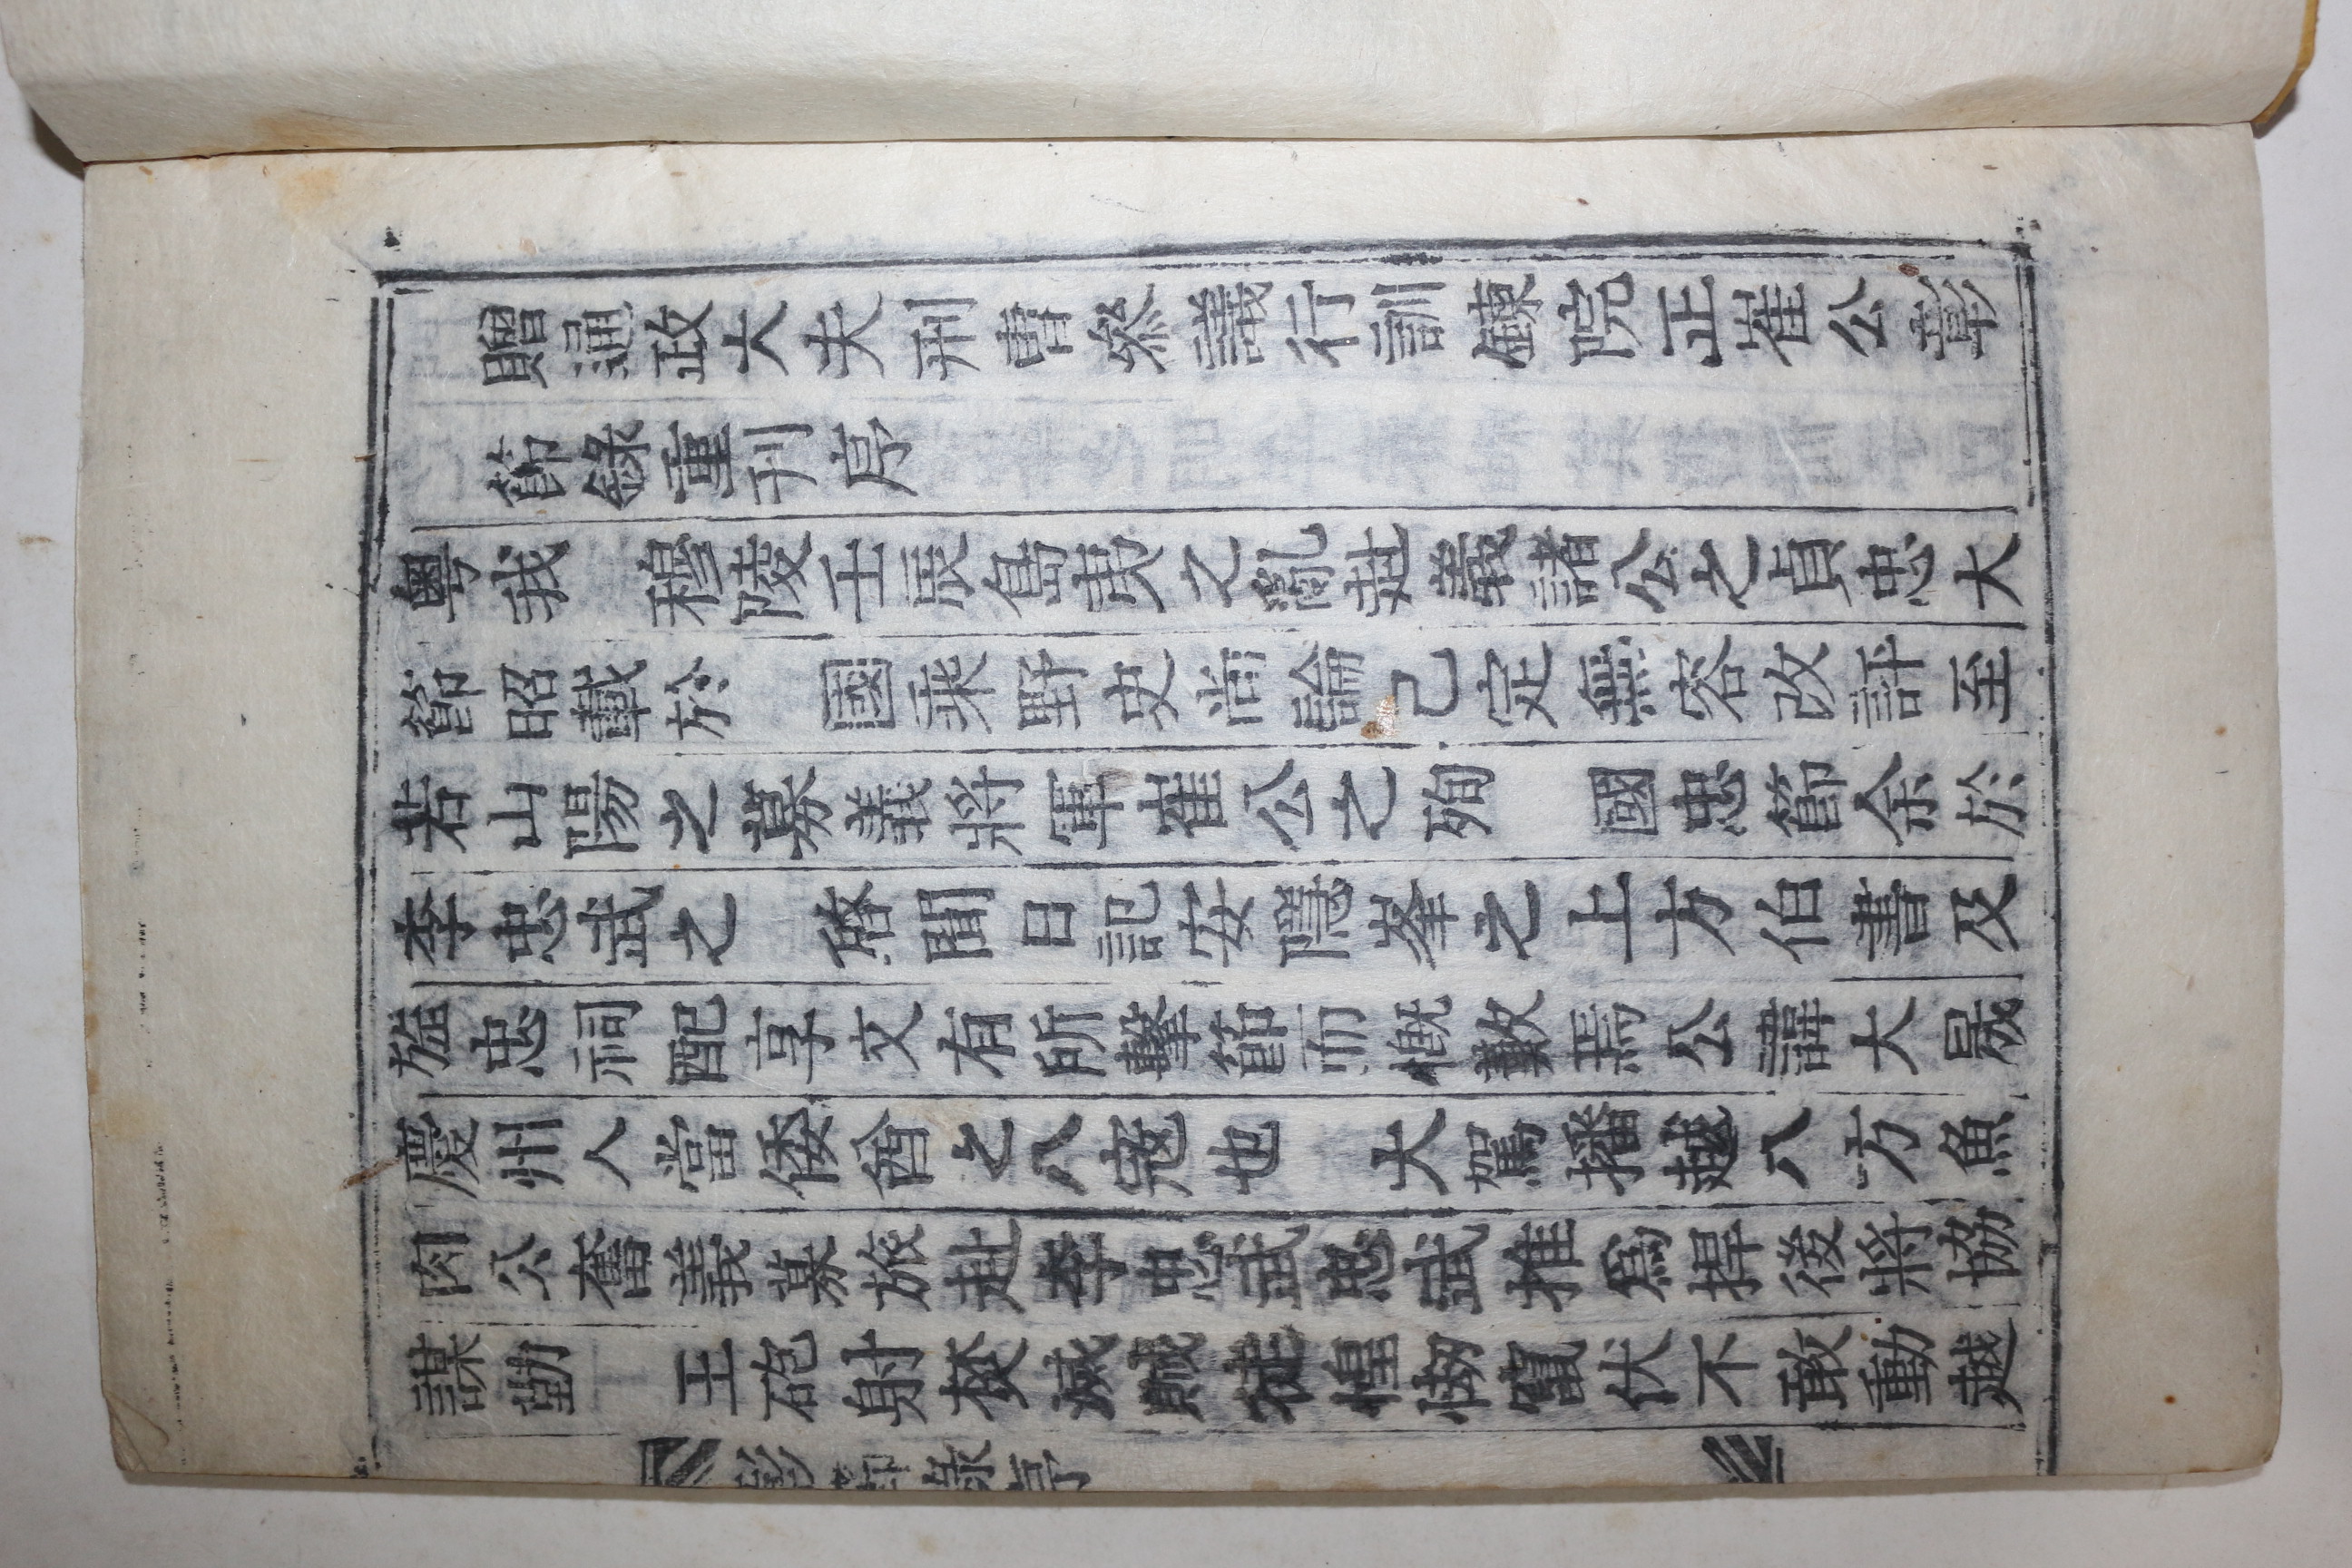 贈通政大夫刑曹叅議行訓鍊院正崔公彰
節錄重刊序
粤我　穆陵壬辰島夷之亂赴義諸公之貞忠大
節昭載於　國乘野史尚論已定無容改評至
若山陽之募義將軍崔公之殉　國忠節余於
李忠武之　啓聞日記安隱峯之上方伯書及
旌忠祠配享文有所擊節而慨歎焉公諱大晟
慶州人當倭酋之八寇也　大駕播越八方魚
肉公奮義募旅赴李忠武忠武推爲捍後將協
謀勤　王砲射焚滅賊徒惶㤼竄伏不敢動越
彰節錄序